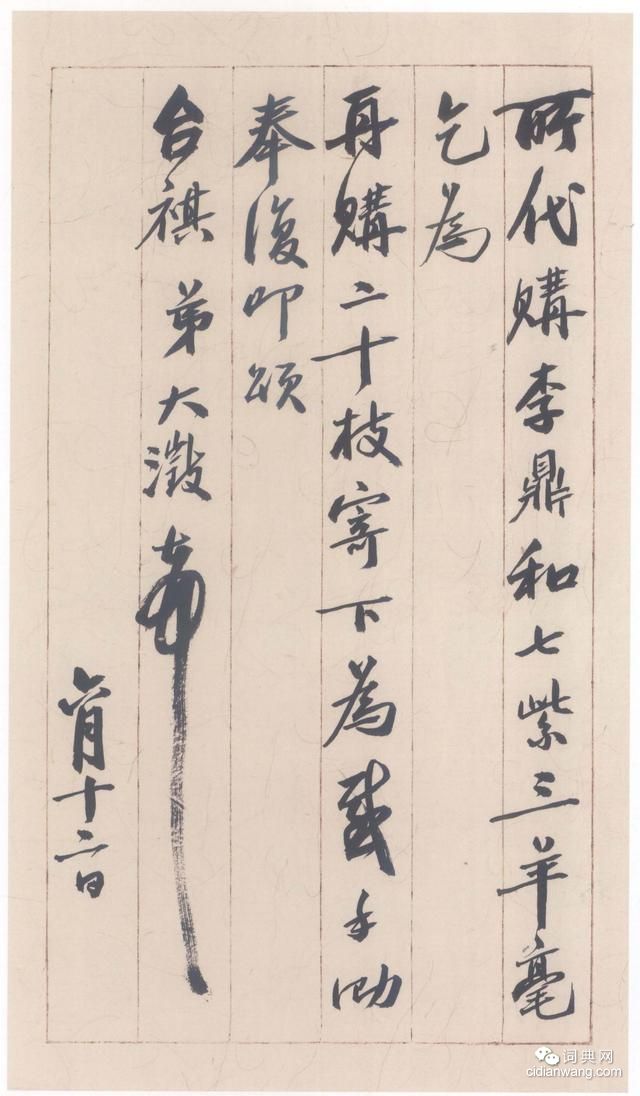 所代購李鼎和七紫三羊毫
乞為
再購二十枝寄下為感手泐
奉復叩頌
台祺 弟大澂
六月十二日
词典网
cidianwang.com